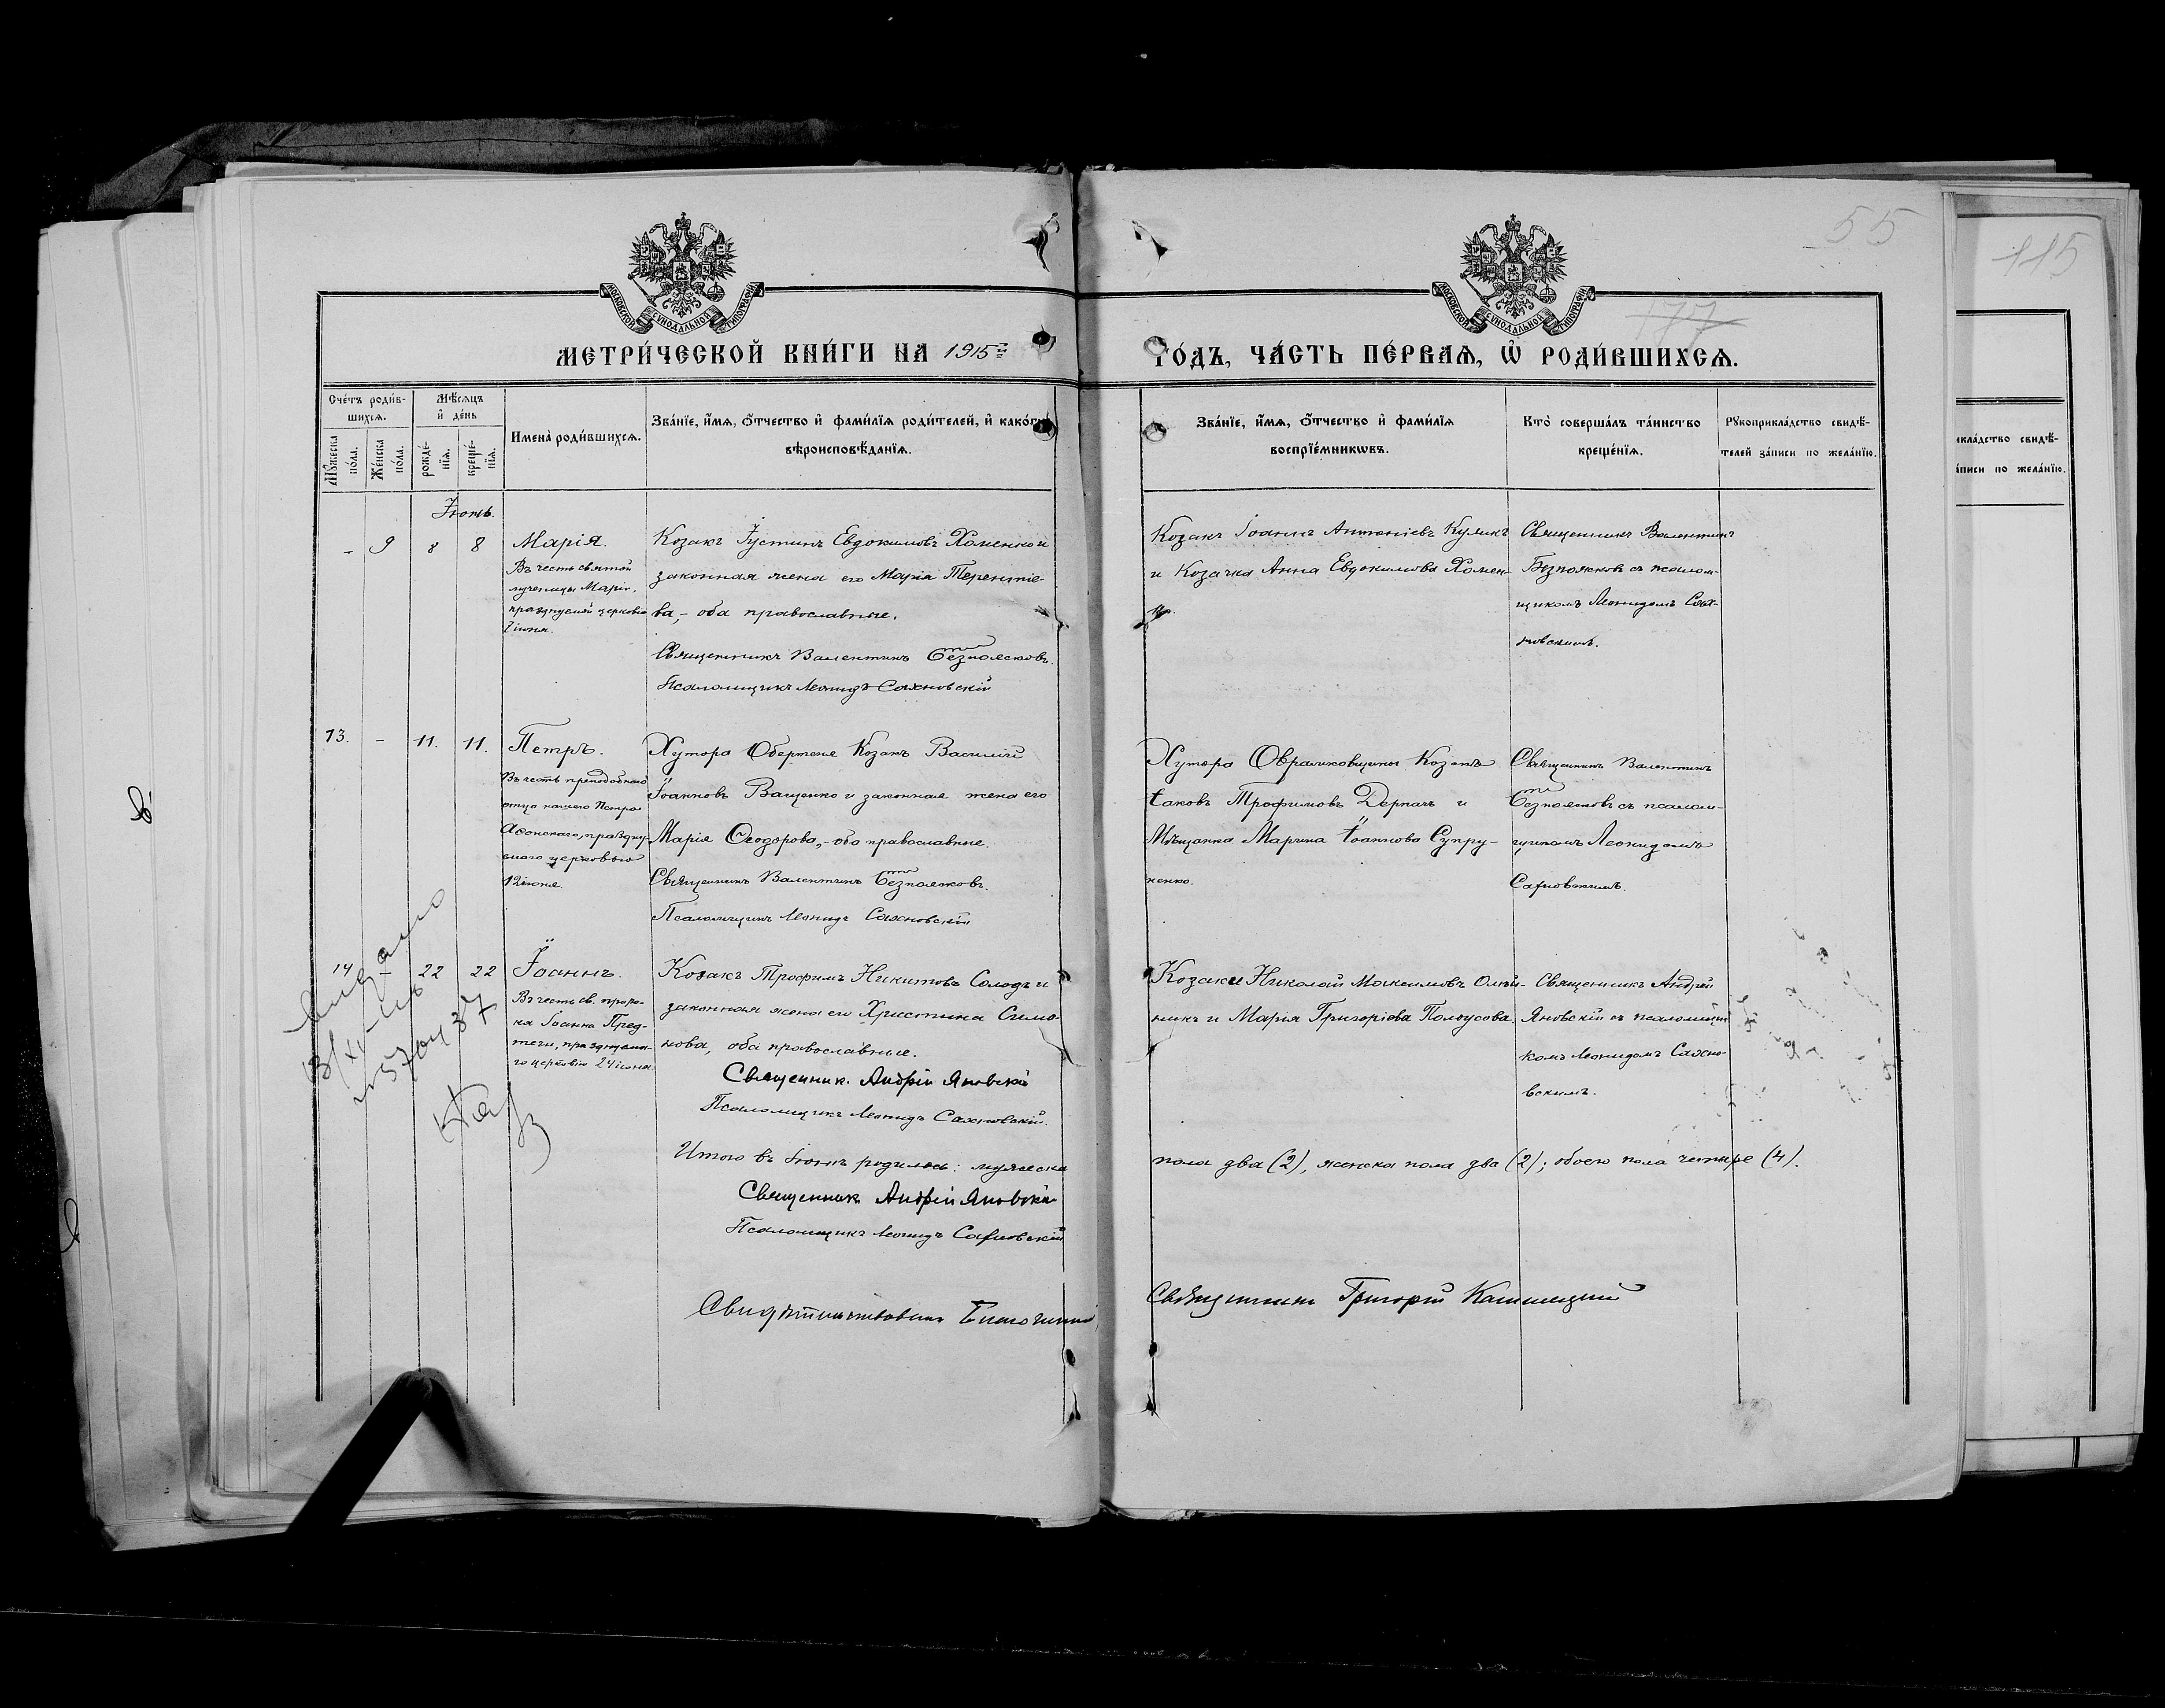 55
115
177
МОСКОВСКОЙ СѴНОДАЛЬНОЙ ТИПОГРАФІИ
МОСКОВСКОЙ СѴНОДАЛЬНОЙ ТИПОГРАФІИ
МЕТРИ́ЧЕСКОЙ КНИ́ГИ НА 1915й
ГО́ДЪ, ЧА́СТЬ ПЕ́РВАѦ, Ѡ҆ РОДИ́ВШИХСѦ.
Сче́тъ роди́в-
шихсѧ.
Мѣ́сѧцъ
и҆ де́нь
Мꙋ́жеска
по́ла.
Же́нска
по́ла.
рожде́-
нїѧ.
креще́-
нїѧ.
Имена̀ роди́вшихсѧ.
Зва́нїе, и҆́мѧ, ѻ҆́тчество и҆ фами́лїѧ роди́телей, и҆ како́гѡ
вѣроисповѣ́данїѧ.
Зва́нїе, и҆́мѧ, ѻ҆́тчество и҆ фами́лїѧ
воспрїе́мникѡвъ.
Кто̀ соверша́лъ та́инство
креще́нїѧ.
Рꙋкоприкла́дство свидѣ́-
телей за́писи по жела́нїю.
икла́дство свидѣ́-
а́писи по жела́нїю.
Іюнь.
- 9 8 8 Марія.
Въ честь святой
мученицы Маріи,
празднуемой церковію
7 іюня.
Козакъ Іустинъ Евдокимовъ Хоменко и
законная жена его Марія Терентіе-
ва,- оба православные.
Священникъ Валентинъ Безпоясковъ.
Псаломщикъ Леонидъ Сахновскій
Козакъ Іоаннъ Антоніевъ Куликъ
и Козачка Анна Евдокимова Хомен-
ко.
Священникъ Валентинъ
Безпоясковъ съ псалом-
щикомъ Леонидомъ Сах-
новскимъ.
13. - 11. 11. Петръ.
Въ честь преподобнаго
отца нашего Петра
Аѳонскаго, праздну-
емаго церковью
12 іюня.
Хутора Обертеня Козакъ Василій
Іоанновъ Ващенко и законная жена его
Марія Ѳеодорова,- оба православные.
Священникъ Валентинъ Безпоясковъ.
Псаломщикъ Леонидъ Сахновскій
Хутора Овраменковщины Козакъ
Іаковъ Трофимовъ Деркачъ и
Мѣщанка Марина Іоаннова Супру-
ненко.
Священникъ Валентинъ
Безпоясковъ съ псалом-
щикомъ Леонидомъ
Сахновскимъ.
14 - 22 22 Іоаннъ.
Въ честь св. проро-
ка Іоанна Пред-
течи, празднуема-
го церковію 24 іюня.
Козакъ Трофимъ Никитовъ Солодъ и
законная жена его Христина Симо-
нова, оба православные.
Священник. Андрій Яновскій
Псаломщикъ Леонидъ Сахновскій.
Козаки Николай Максимовъ Олей-
никъ и Марія Григоріева Полоусова.
Священникъ Андрей
Яновскій съ псаломщи-
комъ Леонидомъ Сахно-
вскимъ.
Выдано
Итого въ Іюнѣ родилось: мужеска
пола два (2), женска пола два (2); обоего пола четыре (4).
Священник Андрій Яновскій
Псаломщикъ Леонидъ Сахновскій
Свидѣтельствовалъ Благочинный
Священникъ Григорій